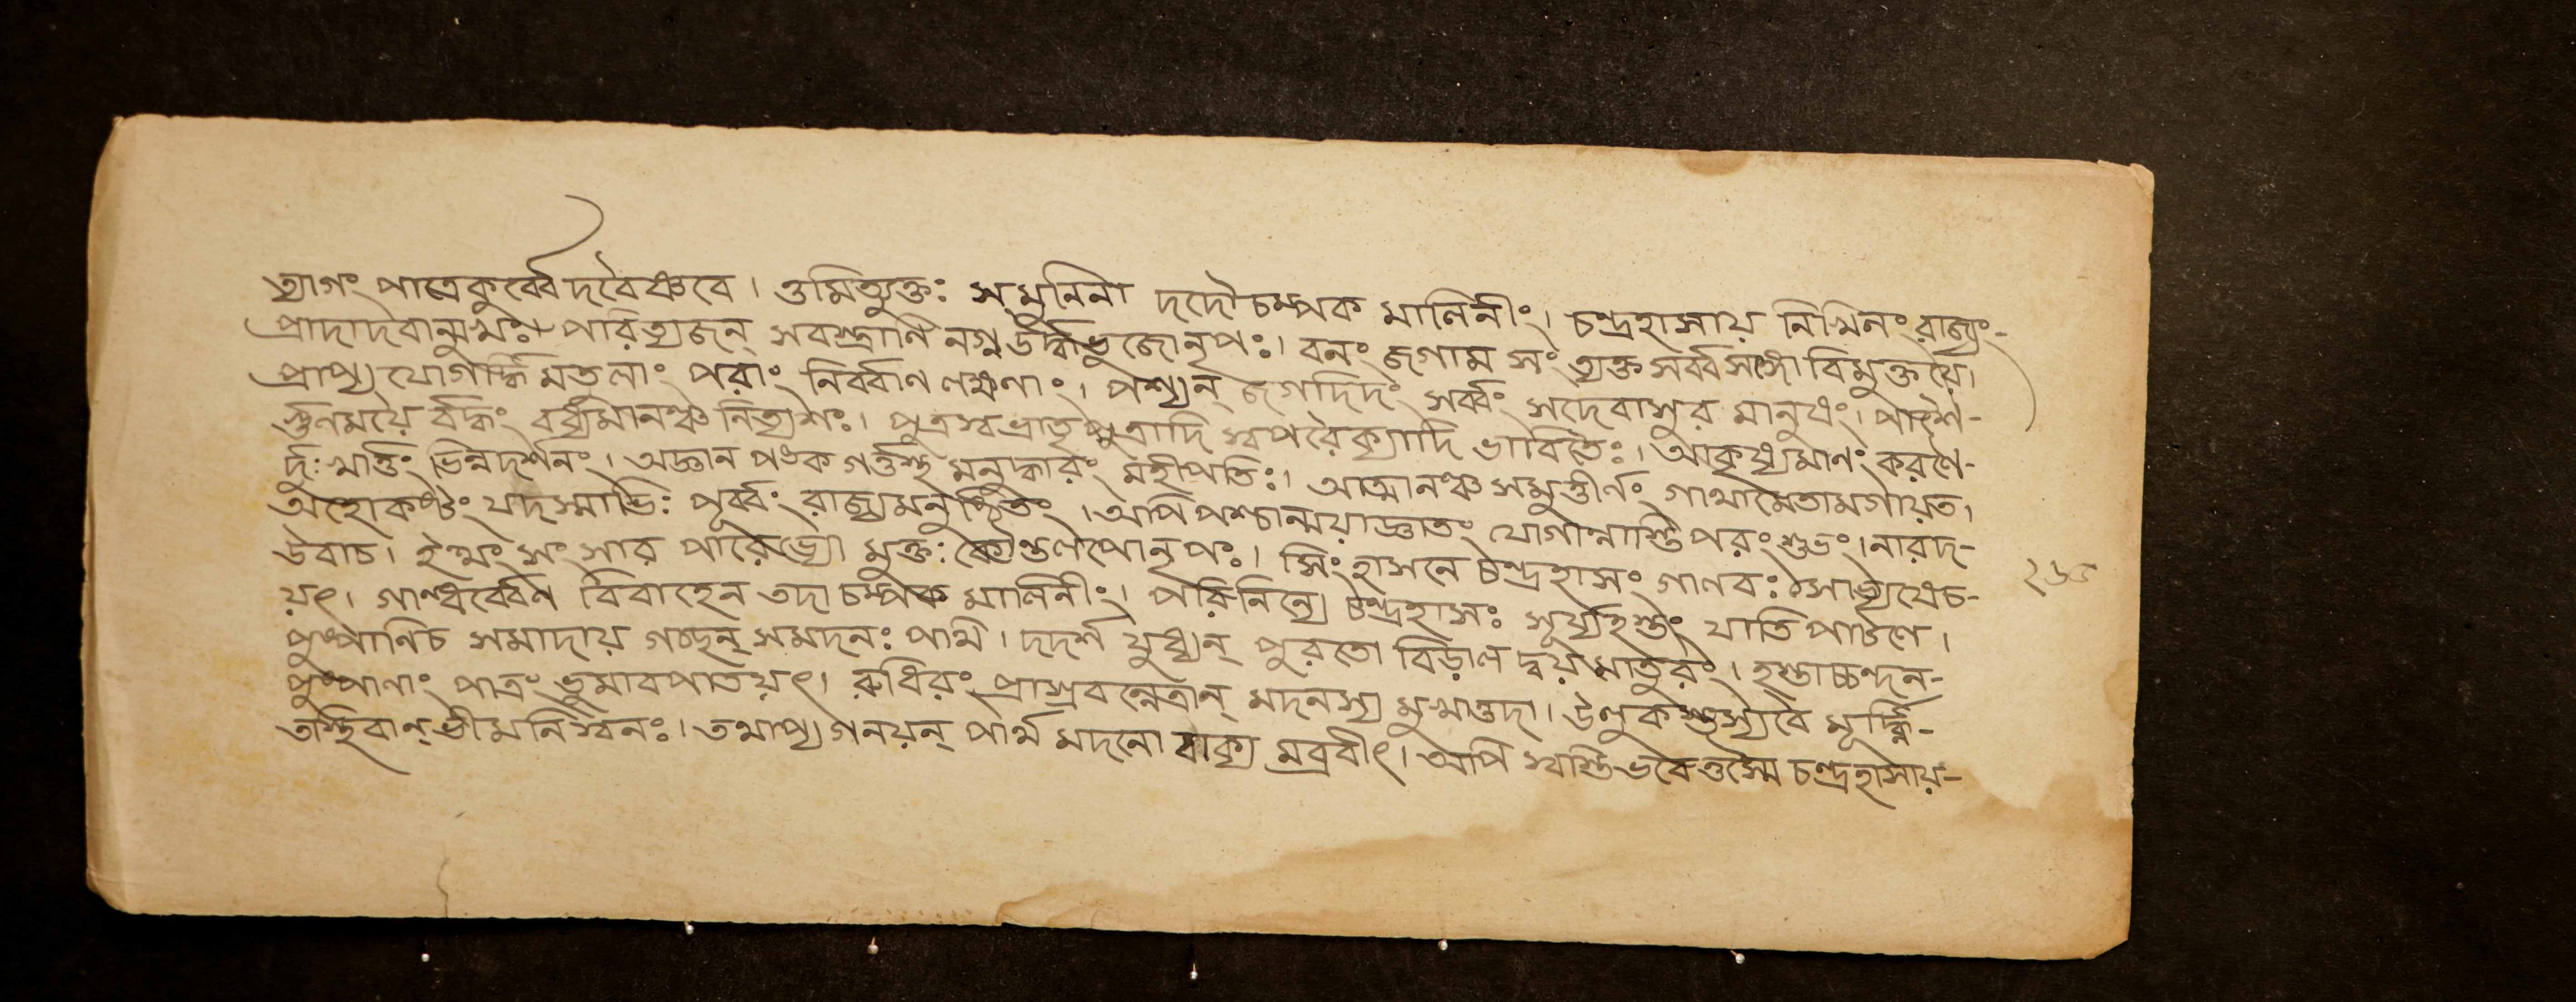 ত্যাগং পাত্রেকুর্ব্বেদবৈষ্ণবে। ওমিত্যুক্তঃ স মুনিনা দদৌ চম্পক মালিনীং। চন্দ্রহাসায় নিখিলং রাজ্যং-
প্রাদাদেবান্মুখঃ। পরিত্যজন্ সবস্ত্রাণি নগ্ন ঊর্দ্ধ্বভুজোনৃপঃ। বনং জগাম সংত্যক্ত সর্ব্বসঙ্গো বিমুক্তয়ে।
প্রাপ্য যোগর্দ্ধিমতুলাং পরাং নির্ব্বাণ লক্ষণাং। পশ্যন্ জগদিদং সর্ব্বং সদেবাসুর মানুষং। পাশৈ-
র্গুণময়ৈ র্বদ্ধং বধ্যমানঞ্চ নিত্যশঃ। পুত্রস্বভ্রাতৃপুত্রাদি স্বপরৈক্যাদি ভাবিতৈঃ। আকৃষ্যমাণং করণৈ-
র্দুঃখার্ত্তং ভিন্নদর্শনং। অজ্ঞান পঙ্ক গর্ত্তস্থ মনুদ্ধারং মহীপতিঃ। আত্মানঞ্চ সমুত্তীর্ণং গাথামেতামগায়ত।
অহোকষ্টং যদস্মাভিঃ পূর্ব্বং রাজ্যমনুষ্ঠিতং। অপি পশ্চান্ময়াজ্ঞাতং যোগান্নাস্তি পরং শুভং। নারদ-
উবাচ। ইত্থং সংসার পারেভ্যো মুক্তঃ কৌন্তলপোনৃপঃ। সিংহাসনে চন্দ্রহাসং গালবঃ সোভ্যষেচ-
য়ৎ। গান্ধর্ব্বেণ বিবাহেন তদা চম্পক মালিনীং। পরিনিন্যে চন্দ্রহাসঃ সূর্য্যহস্তং যাতি পাটণে।
পুষ্পানিচ সমাদায় গচ্ছন্ সমদনঃ পথি। দদর্শ যুধ্যন্ পুরতো বিড়াল দ্বয়মাতুরং। হস্তাচ্চন্দন-
পুষ্পাণাং পাত্রং ভূমাবপাতয়ৎ। রুধিরং প্রাস্রবন্নেত্রান্ মদনস্য মুখাত্তদা। উলুকস্তস্যবৈ মূর্দ্ধ্নি-
তস্থিবান্ ভীমনিস্বনঃ। তথাপ্য গনয়ন্ পার্থ মদনো বাক্য মব্রবীৎ। অপি স্বস্তিভবেত্তস্মৈ চন্দ্রহাসায়-